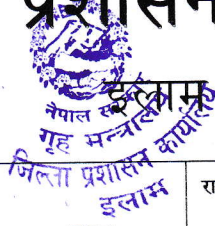 प्रशासन
इलाम
नेपाल
गृह मन्त्रालय
जिल्ला प्रशासन कार्यालय
इलाम
रा